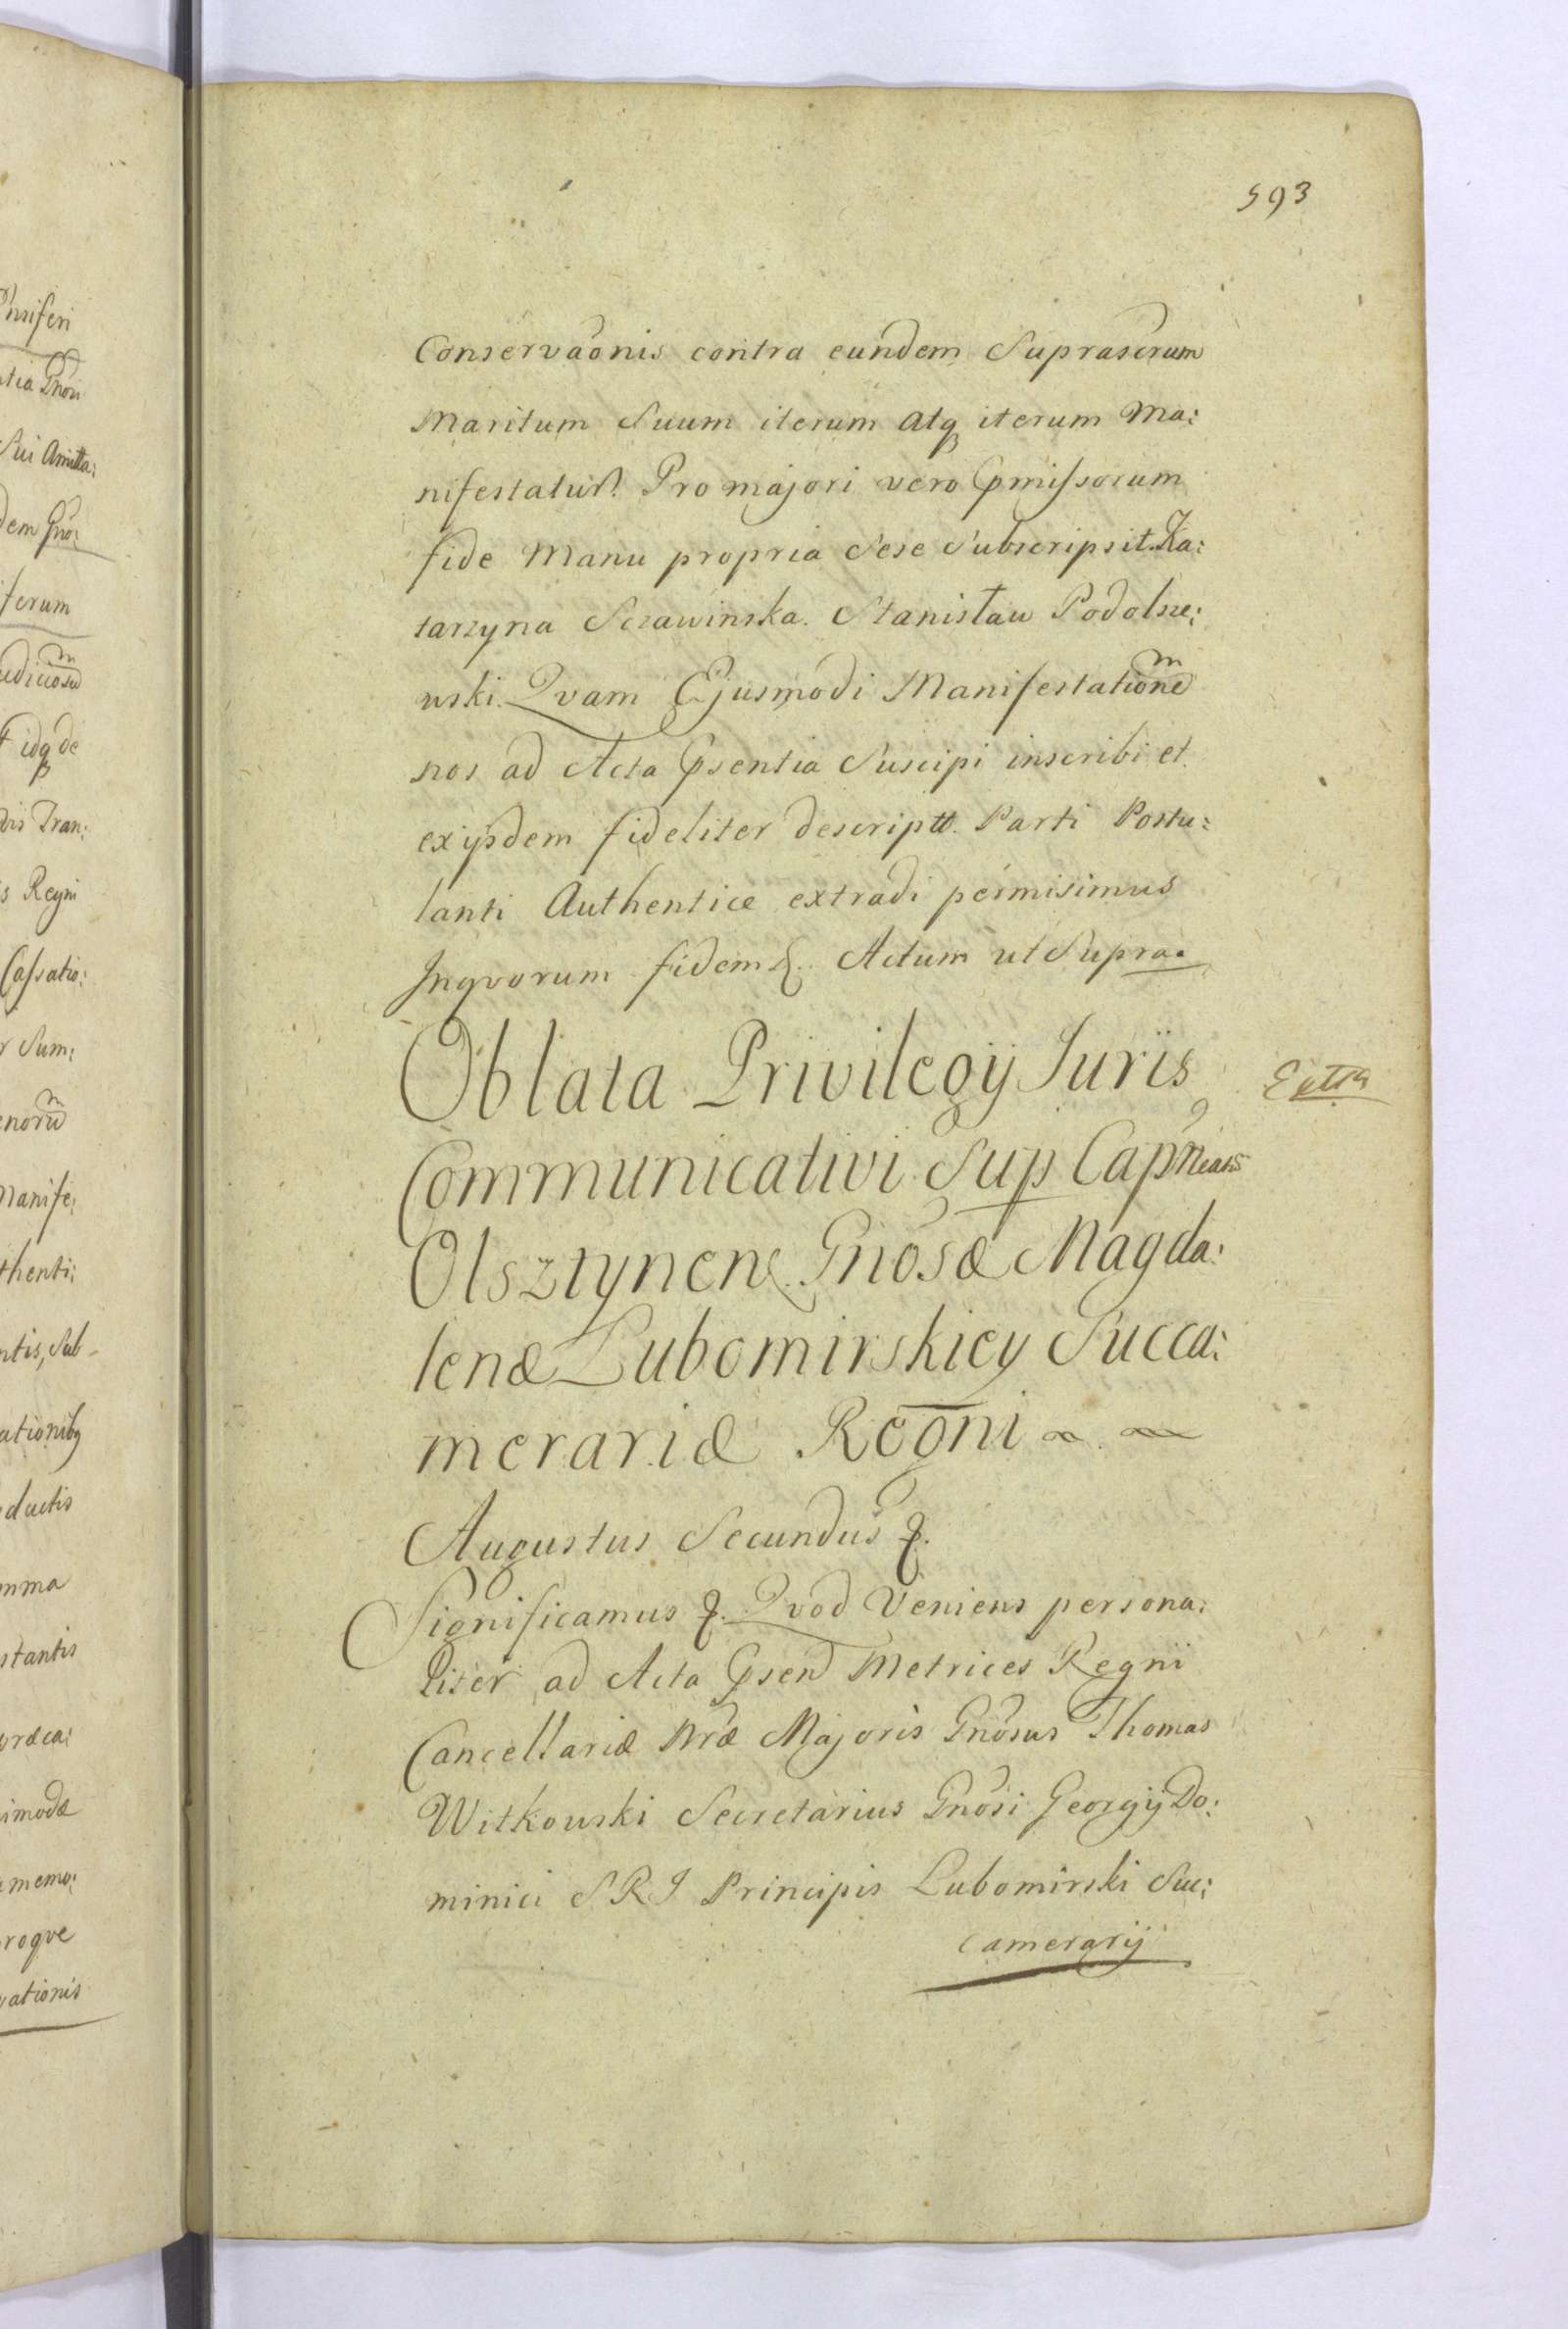 593
Conservãonis contra eundem Suprascrum
Maritum Suum iterum atq iterum Ma:
nifestatur. Pro majori vero Pmissorum
fide Manu propria Sese Subscripsit. Ka:
tarzyna Szrawinska. Stanisław Podolsze:
wski. Qvam Ejusmodi Manifestatione
nos ad Acta Psentia Suscipi inscribi et
ex ijsdem fideliter descriptt. Parti Postu:
lanti Authentice extradi permisimus
Inqvorum fidem &. Actum ut Supra.
Oblata Privilegij Juris
Extra
Communicativi Sup Capneats
Olsztynen Gnosæ Magda:
lenæ Lubomirskiey Succa:
merariæ Regni
Augustus Secundus &.
Significamus &. Qvod Veniens persona:
liter ad Acta Psen Metrices Regni
Cancellariæ Nræ Majoris Gnosus Thomas
Witkowski Secretarius Gnosi Georgij Do:
minici S R I Principis Lubomirski Suc:
camerarij
nsiferi
dem Gno:
ferum
idq de
dis Tran:
s Regni
Cassatio:
r Sum:
enorũ
Manife:
thenti:
ntis, Sub-
ationibg
ductis
mma
stantis
græca:
imodæ
memo:
roqve
vationis